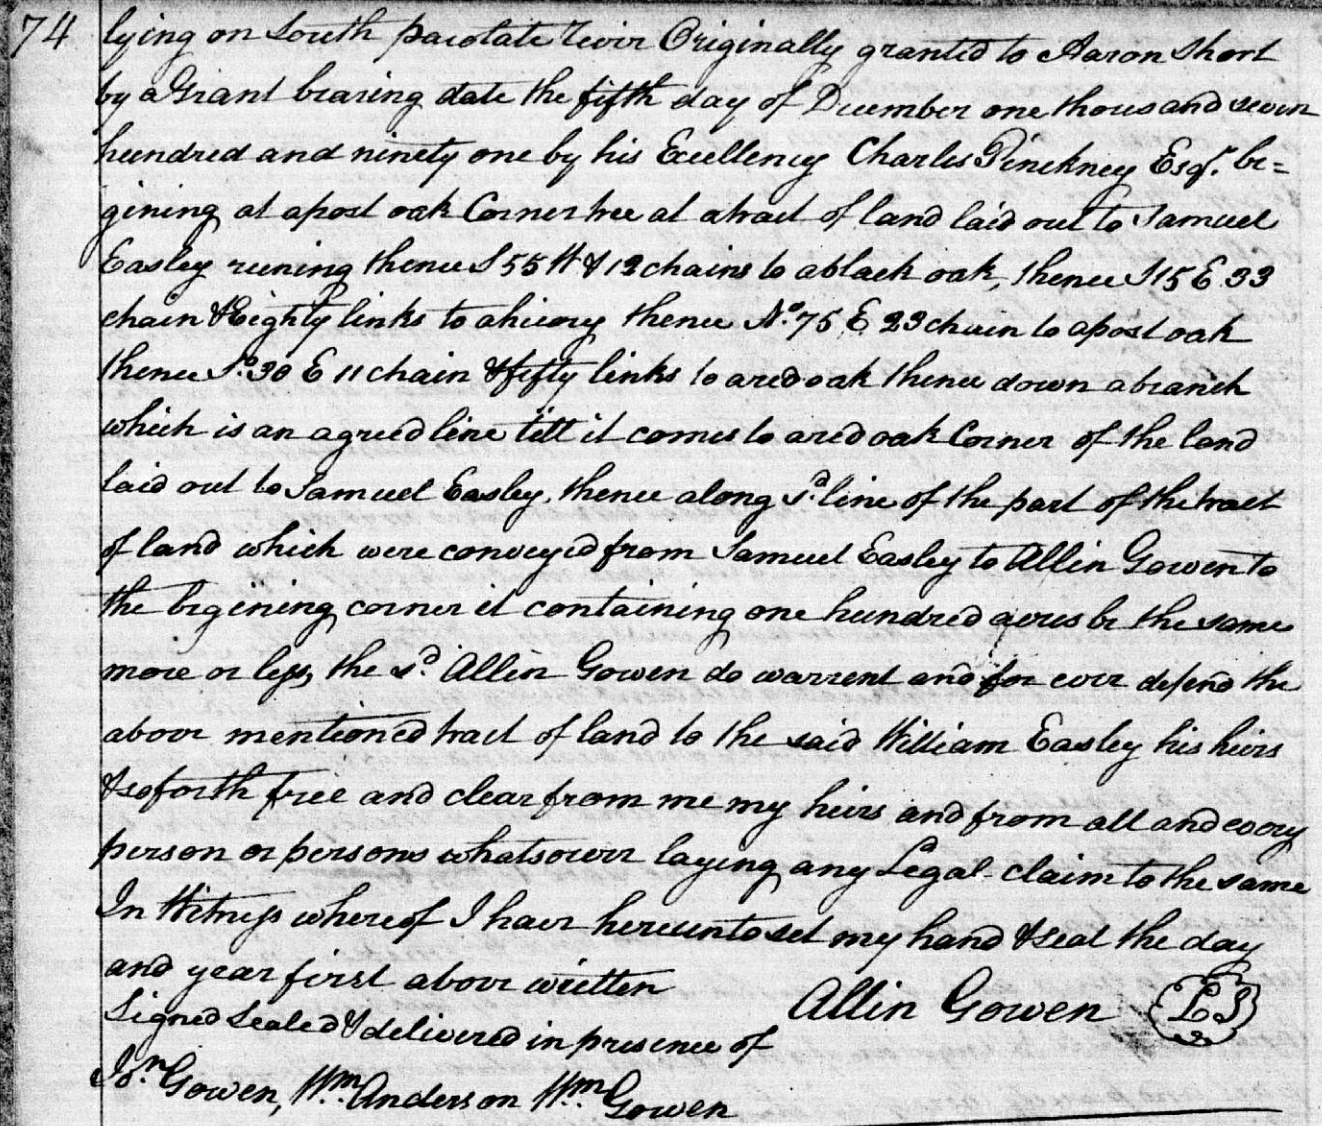 74 lying on South pacolate River Originally granted to Aaron Short
by a Grant bearing date the fifth day of December one thousand seven
hundred and ninety one by his Excellency Charles Pinckney Esqr. be=
gining at a post oak Corner tree at a tract of land laid out to Samuel
Easley runing thence S 55 W & 12 chains to a black oak, thence S 15 E 33
chain & Eighty links to a hicory thence No. 75 E 23 chain to a post oak
thence So. 30 E 11 chain & fifty links to a red oak thence down a branch
which is an agreed line till it comes to a red oak Corner of the land
laid out to Samuel Easley, thence along sd. line of the part of the tract
of land which were conveyed from Samuel Easley to Allin Gowen to
the begining corner it containing one hundred acres be the same
more or less, the sd. Allin Gowen do warrent and for ever defend the
above mentioned tract of land to the said William Easley his heirs
& so forth free and clear from me my heirs and from all and every
person or persons whatsoever laying any Legal claim to the same
In Witness whereof I have hereunto set my hand & seal the day
and year first above written
Allin Gowen LS
Signed Sealed & delivered in presence of
Jon. Gowen, Wm. Anderson Wm. Gowen